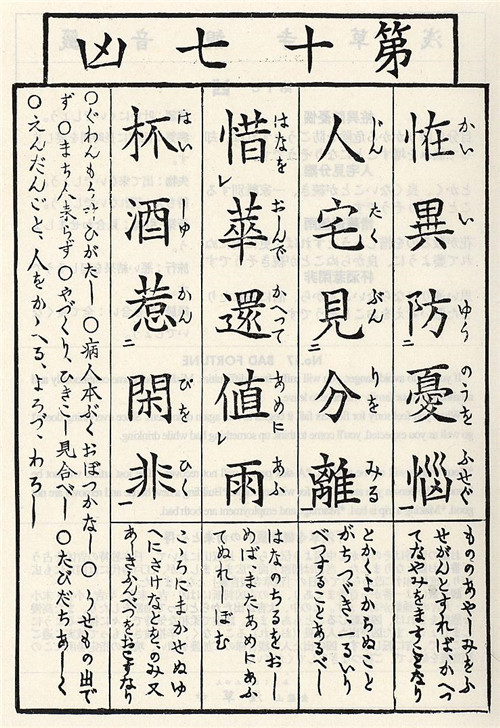 第十七凶
恠異防憂惱
かいいゆうのうをふせぐ
人宅見二分離一
じんたくぶんりをみる
惜レ華還値レ雨
はなをおしんでかへつてあめにあふ
杯酒惹二閑非一
はいしゆかんぴをひく
もののあやしみをふ
せがんとすればかへつ
てなやみをますことなり
とかくよからぬこと
がちつゞき、一るいり
べつすることあるべし
はなのちるをおし
めば、またあめにあふ
てぬれしぼむ
こゝろにまかせぬゆ
へ、さけなどのみ又
あしきふんべつをおこすなり
○ぐわんもう叶ひがたし ○病人本ぶくおぼつかなし ○うせもの出で
ず ○まち人来らず ○やづくり、ひきこし見合べし ○たびだちあしく
○えんだんごと、人をかゝへる、よろづ、わろし